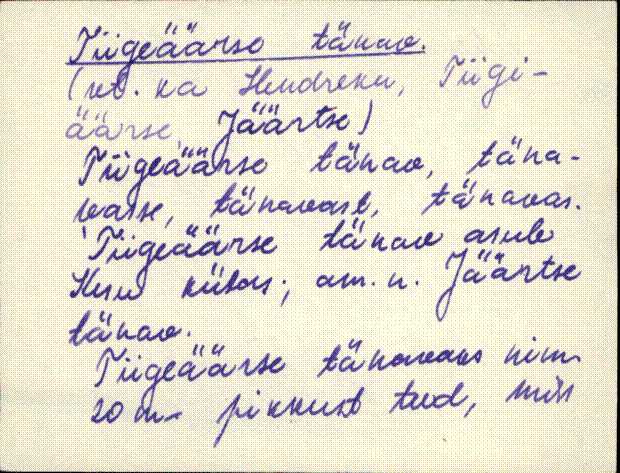 Tiigeäärse tänav.
(vt. ka Hendreku, Tiigi-
äärse, Jäärtse)
Tiigeäärse tänav, täna-
vasse, tänavast, tänavas.
Tiigeäärse tänav asub
Kusu külas; am. n. Jäärtse
tänav.
Tiigeäärse tänavaks nim.
20 m. pikkust teed, mis